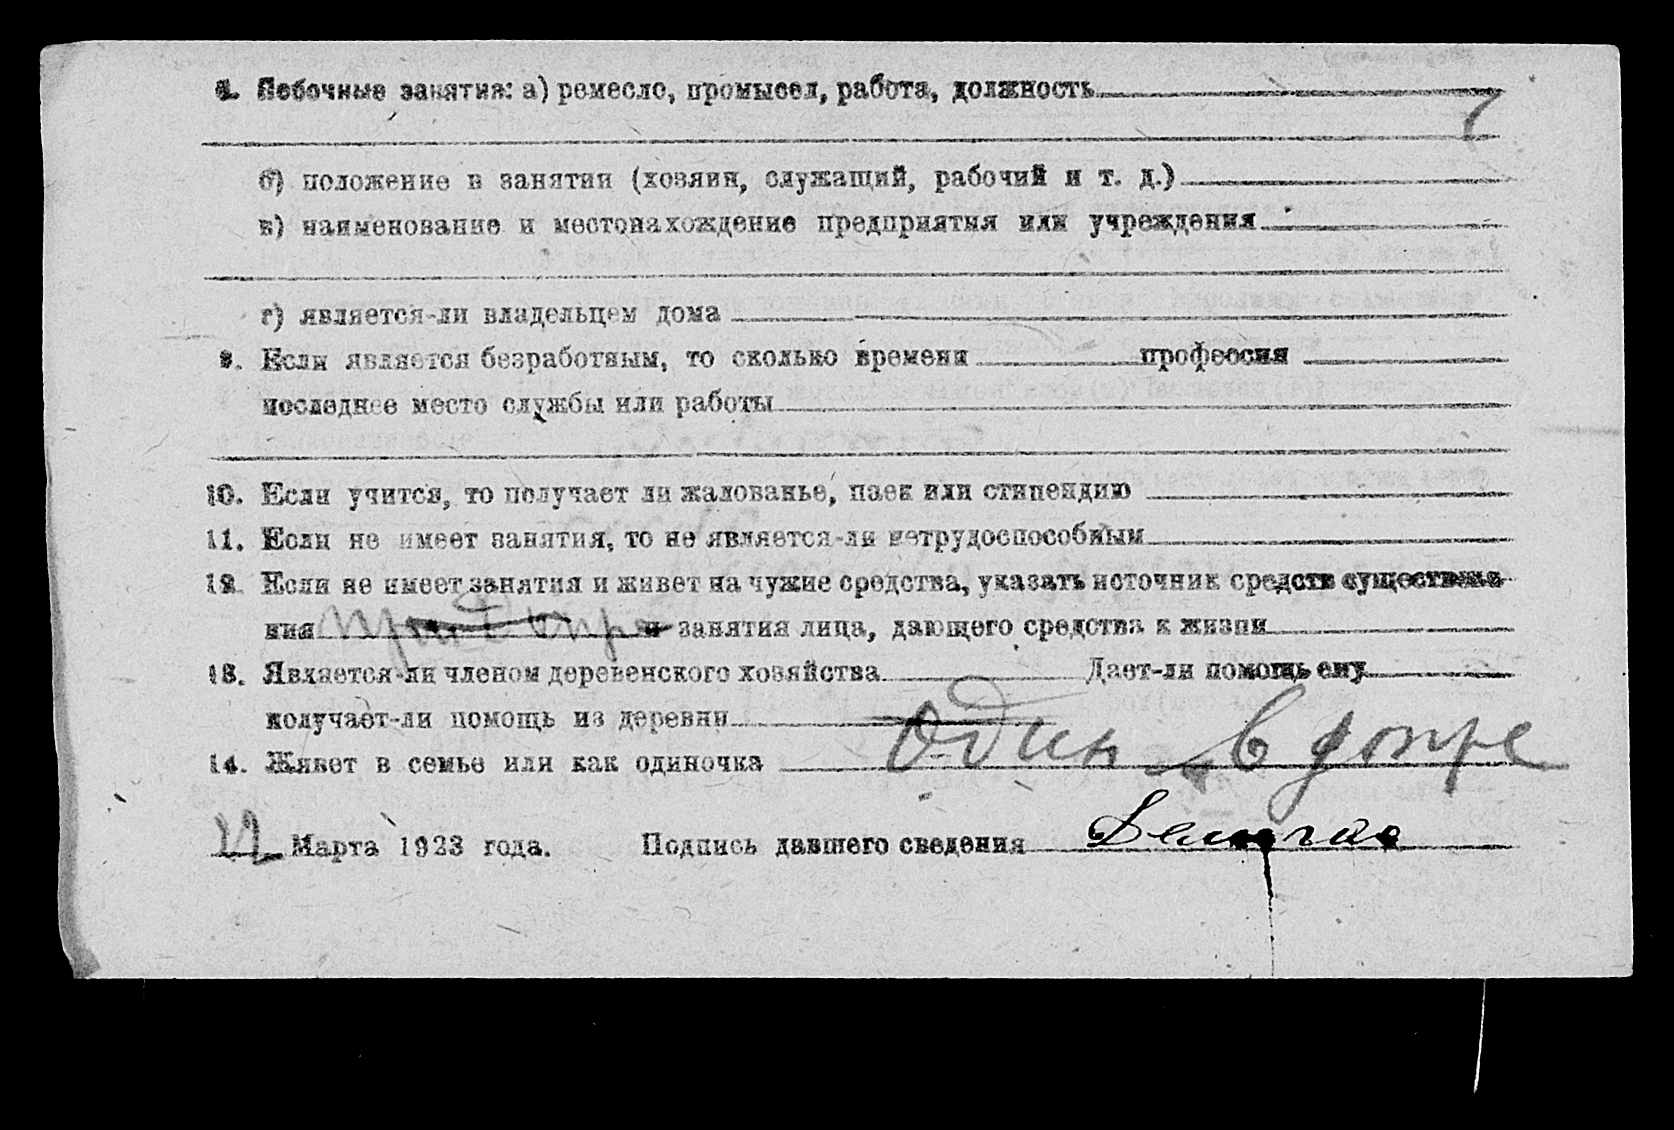 8. Побочные занятия: а) ремесло, промысел, работа, должность
б) положение в занятии (хозяин, служащий, рабочий и т. д.)
в) наименование и местонахождение предприятия или учреждения
г) является-ли владельцем дома
9. Если является безработным, то сколько времени профессия
последнее место службы или работы
10. Если учится, то получает ли жалованье, паек или стипендию
11. Если не имеет занятия, то не является-ли нетрудоспособным
12. Если не имеет занятия и живет на чужие средства, указать источник средств существова-
ния и занятия лица, дающего средства к жизни
13. Является-ли членом деревенского хозяйства Дает-ли помощь ему
получает-ли помощь из деревни
14. Живет в семье или как одиночка один в допре
22 Марта 1923 года. Подпись давшего сведения